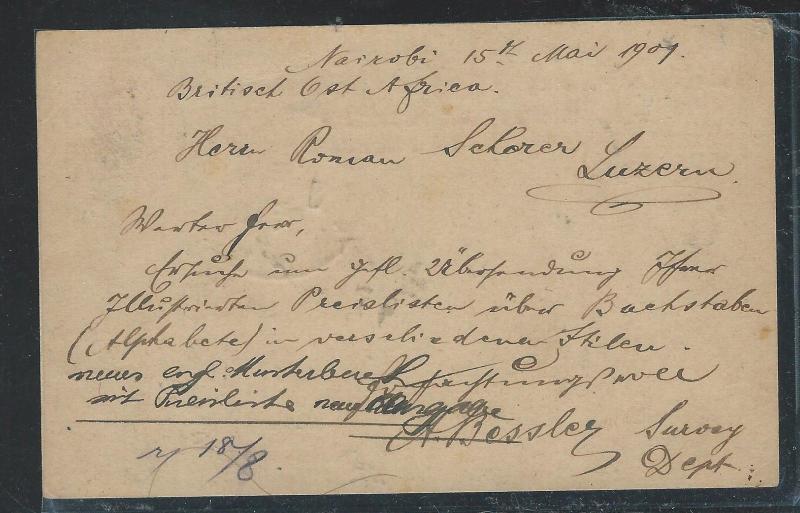 Nairobi 15th Mai 1909.
Britisch Ost Africa.
Herrn Roman Scherer
Luzern.
Werter Herr,
Ersuche um gefl. Übersendung Ihrer
Illustrierten Preislisten über Buchstaben
(Alphabete) in verschiedenen Stilen.
neues engl. Musterbuch
Achtungsvoll
mit Preisliste
A. Bessler Survey
Dept.
18/8.